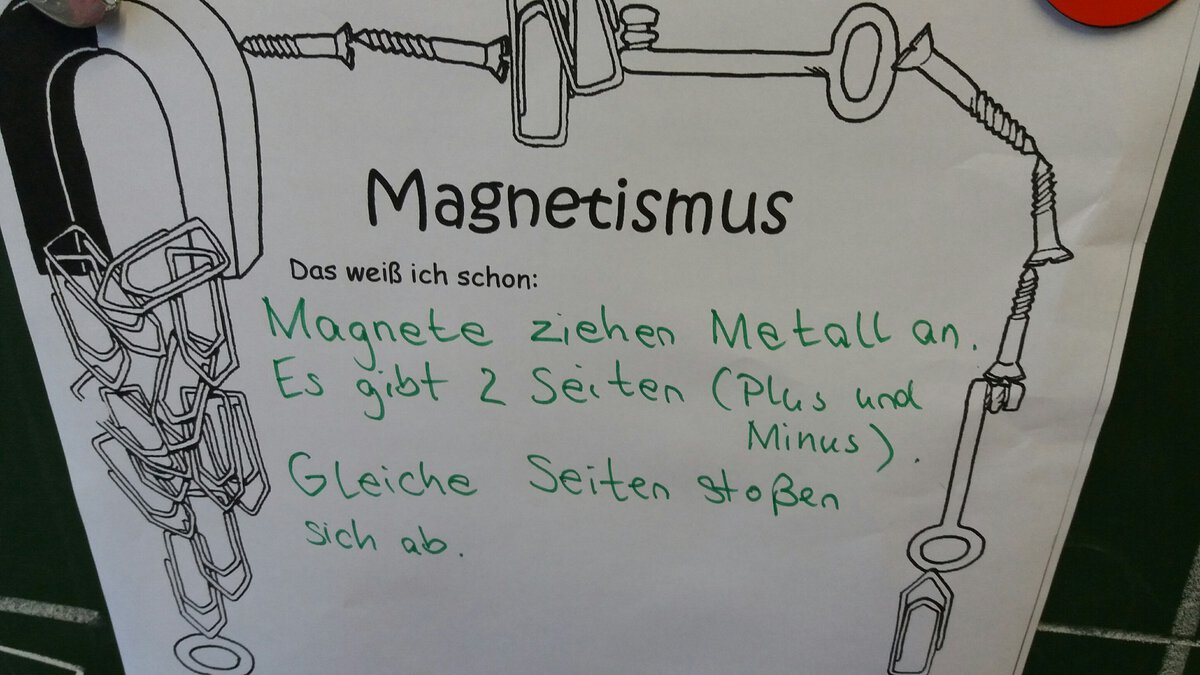 Magnetismus
Das weiß ich schon:
Magnete ziehen Metall an.
Es gibt 2 Seiten (Plus und
Minus).
Gleiche Seiten stoßen
sich ab.